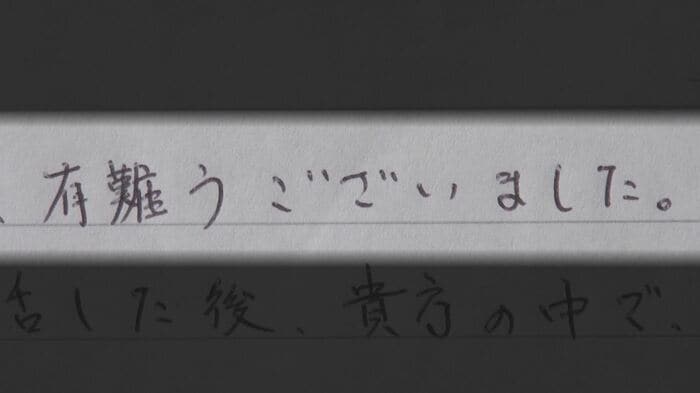 、有難うございました。
した後、貴方の中で、